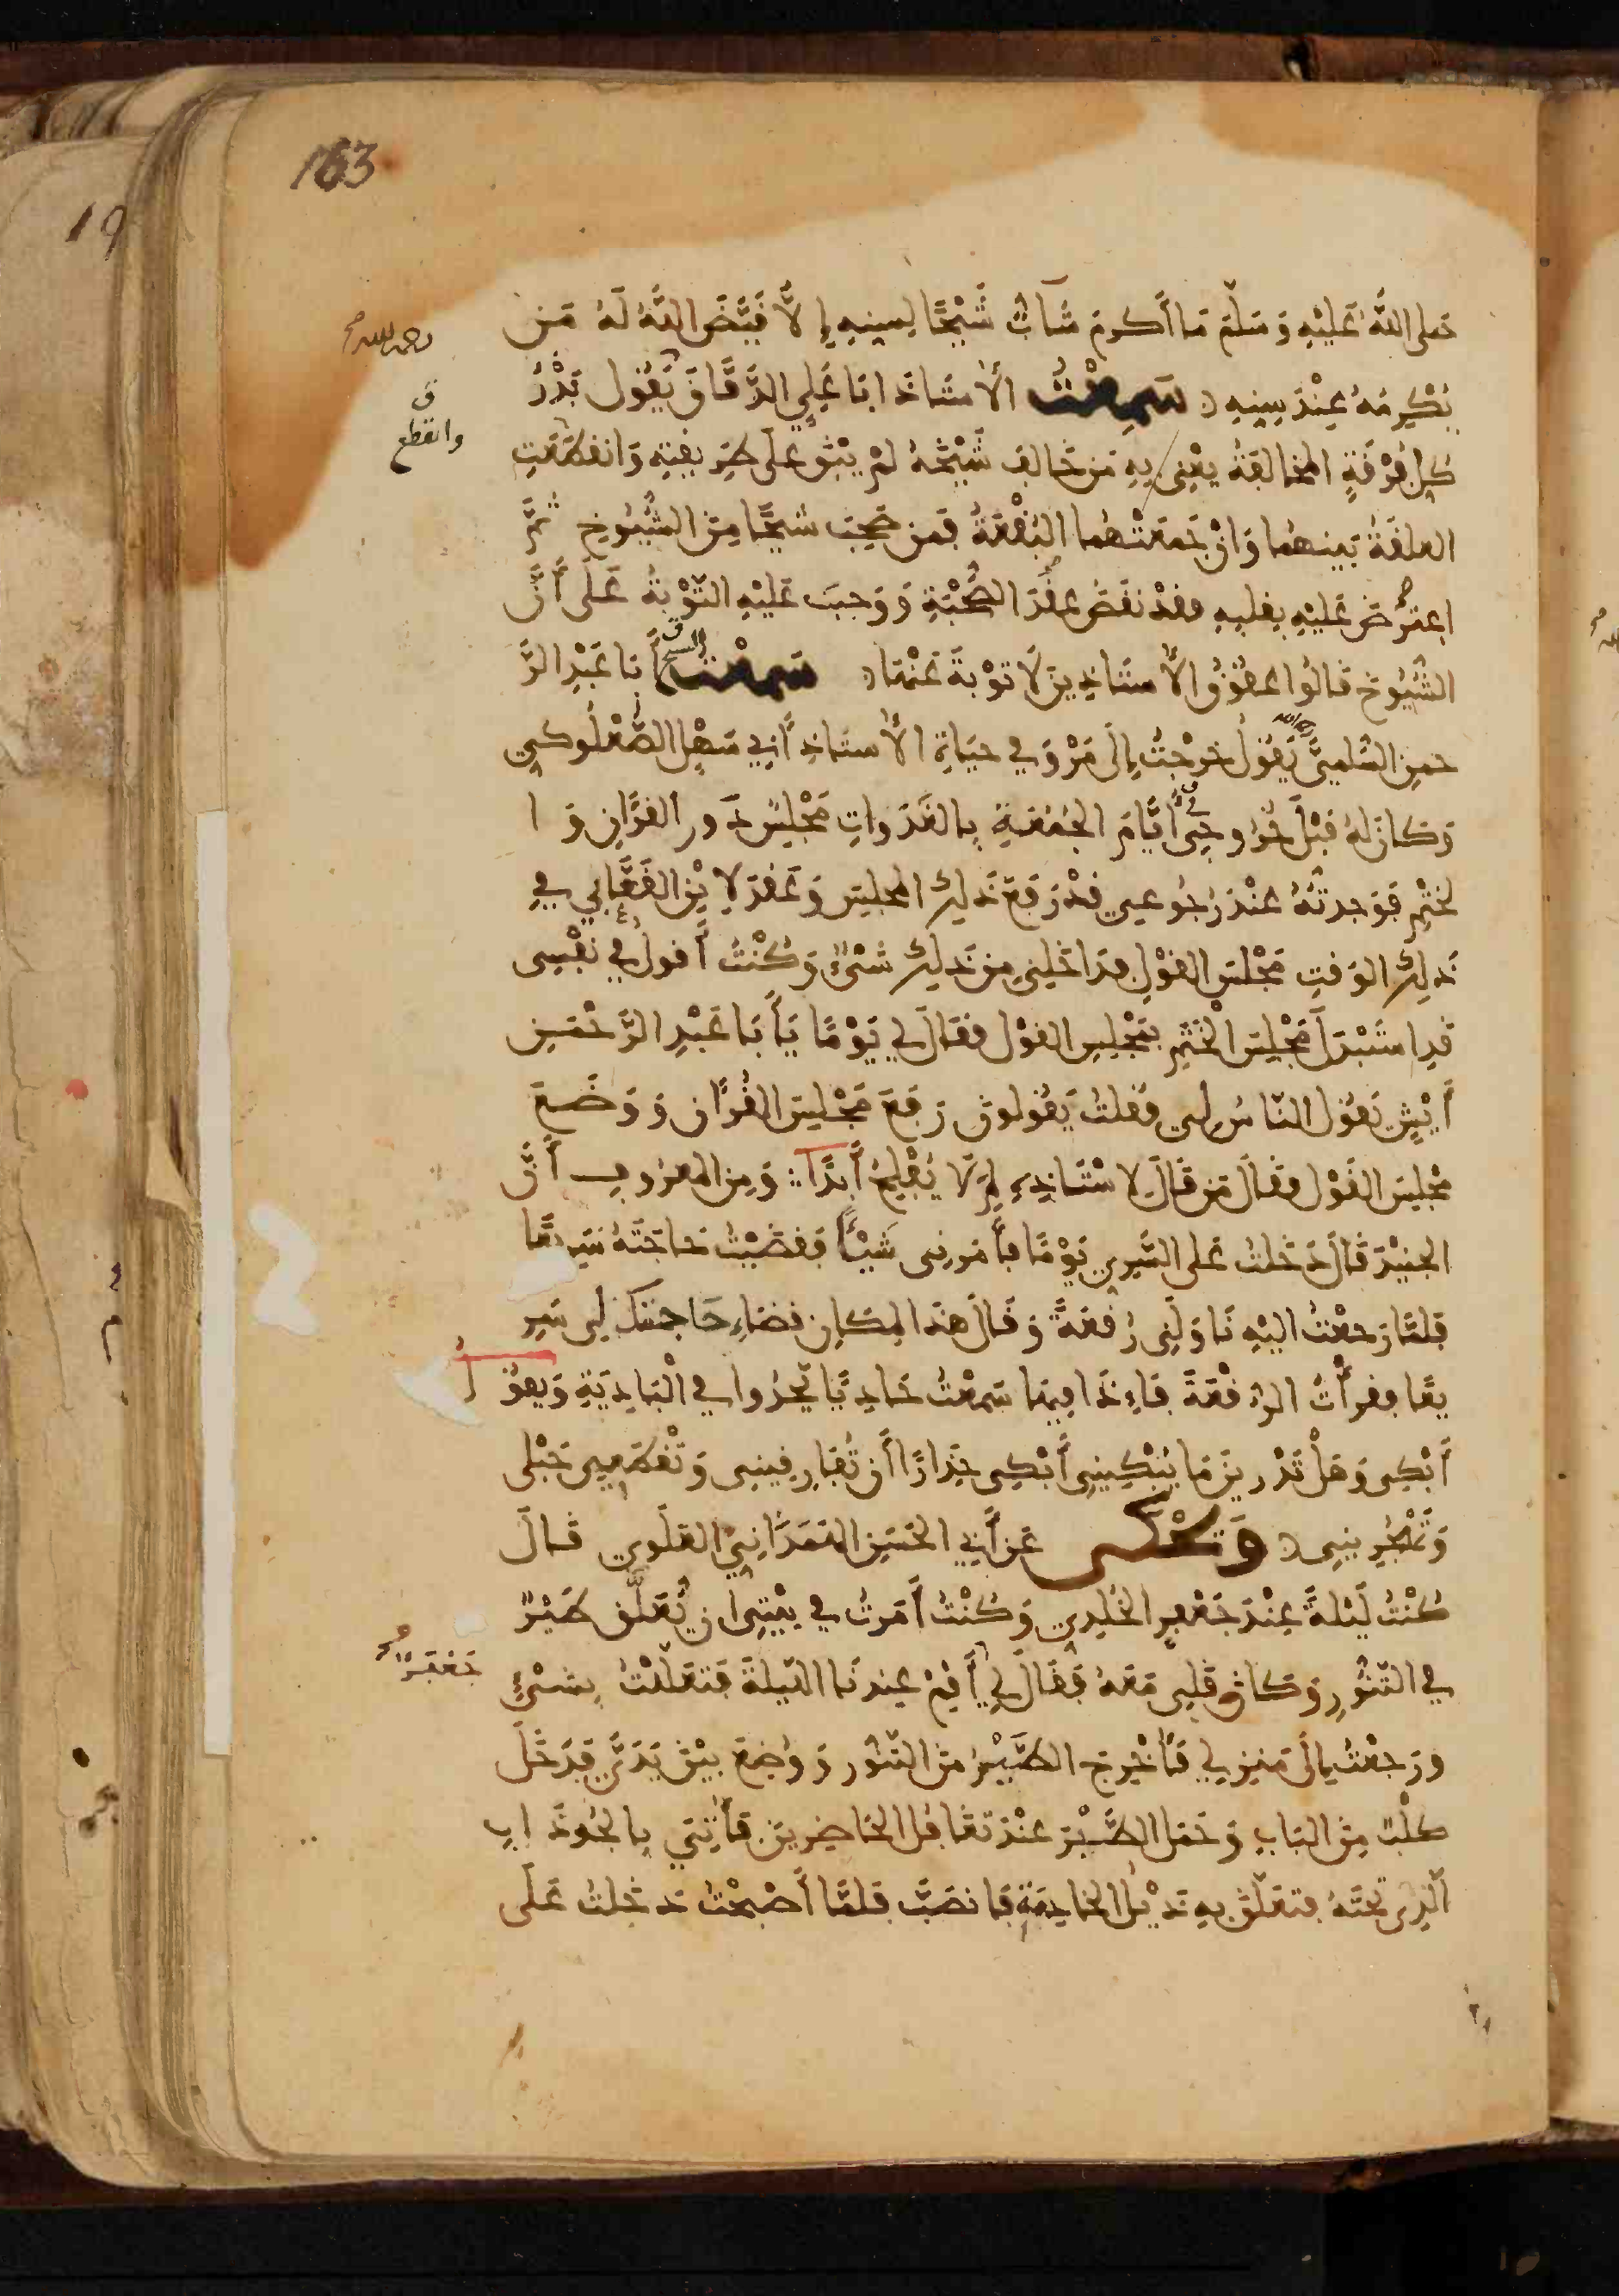 163
19
صلى اللّه عَلَيْهِ وَسَلَّمَ مَا أَكرمَ شَابٌّ شَيْخًا لِسِنِهِ إِلاَّ قَيَّضَ اللَّهُ لَهُ مَن
رحمه الله صح
يُكْرِمَهُ عِنْدَ سِنِهِ سَمِعْتُ الأُسْتَاذَ ابَا عَلِي الدَّقَّاقَ يَقُول بَدْءُ
ق
وانقطع
كلِّ فُرْقَةٍ المخالفَةُ يعْنِى بِهِ مَن خَالَفَ شَيْخَهُ لَمْ يَبْقَ على طَرِيقتِهِ وَانقطَعَتِ
العلقَةُ بَينهمَا وَانْ جَمَعَتْهُما البُقْعَةُ فَمن صَحِبَ شَيْخًا مِنَ الشُّيُوخِ ثمَّ
اعتَرضَ عَلَيْهِ بقلبِهِ فقدْ نقَضَ عقْدَ الصُّحْبَةِ وَوَجبَتَ عَلَيْهِ التّوْبةُ عَلَى أَنَّ
الشُّيُوخَ قَالوُا عقُوقُ الأُسْتَاذِينَ لَا تَوْبةَ عَنْهَا سَمِعْتُ الشيخ أَبَا عَبْدِ الرَّ
حمنِ السُّلميَّ رحمه الله يَقُولُ خَرجْتُ إِلَى مَرْوَ في حَيَاةِ الأُستاذِ أَبِي سَهْلِ الصُّعْلُوكي
وَكانَ لهُ قبْلَ خُرُوجِى أَيَّامَ الجُمُعَةِ بِالغَدَوَاتِ مَجْلِسُ دَور القرَّانِ وَا
لخَتْمِ فَوَجدتُهُ عنْدَ رجُوعىِ قدْ رَفعَ ذَلِك المجلِسَ وَعَقدَ لاِبْنِ الفَعَّابِي فِي
ذَلِك الوَقتِ مَجْلسَ القَوْلِ فدَاخَلنِي مِن ذَلِك شَىْءٌ وَكُنْتُ أَقول فِي نَفْسِى
قَدِ اسْتَبْدَلَ مَجْلِسَ الْخَتْمِ بِمَجْلِسِ القَوْلِ فقَالَ لِي يَوْمًا يَأَبَا عَبْدِ الرَّحْمَنِ
أَيْشِ يَقُول النّاسُ لِي فقلتُ يَقُولونَ رَفعَ مَجْلِسَ القُرَّانِ وَوَضَعَ
مَجْلِسَ القَوْلِ فقَالَ مَن قَالَ لاُسْتَاذِهِ لِمَ لَا يُفْلِحُ أَبَدًا وَمِنَ المعرُوفِ أَنَّ
الجنيْدَ قَالَ دَخَلتُ عَلى السَّرِي يَوْمًا فأَمَرنِى شَيْئًا فَقضَيْتُ حَاجَتَهُ سَرِيعًا
فَلمَّا رَجعْتُ اليْهِ نَاوَلَنِى رُقعَةً وَقَالَ هذَا المكان قضَاءِ حَاجتك لِى سَرِ
يعًا فقرأْتُ الرُّقْعَةَ فَاِذَا فِيهَا سَمعْتُ حَادِيًا يَحْدُوا في الْبَادِيَةِ وَيقُول
أَبْكِى وَهَلْ تَدْرِينَ مَا يُبْكِينِى أَبْكِى حِذَارًا أَن تُفَارِقِينِى وَتَقْطَعِى حَبْلِى
وَتَهْجُرِينِى وَيُحْكى عَن أَبِي الحَسَنِ الهَمَدَانِيّ العَلَوِي قَالَ
كُنْتُ لَيْلةً عِنْدَ جَعْفَرِ الخُلدِي وَكُنْتُ أَمَرتُ في بيْتِى ان يُعَلَّقَ طَيْرٌ
جَعْفَرًا صح
في التّنُّورِ وَكانَ قَلبِى مَعَهُ فَقَالَ لِي أَقِمْ عِندنَا اللّيلةَ فتعَلّلْتُ بِشَىْءٍ
ورَجعْتُ إِلَى مَنزِلِي فَأُخْرِجَ الطَّيْرُ مِنَ التّنّورِ وَوُضِعَ بيْنَ يَدَيَّ فَدَخَلَ
كلْبٌ مِنَ البَابِ وَحَمَلَ الطَّيْرَ عنْدَ تغَافُلِ الحَاضِرِينَ فَأُتِيَ بِالجُوذَابِ
الَّذِى تَحْتَهُ فتعَلّقَ بِهِ ذَيْلُ الخَادِمَةِ فَانصَبَّ فَلمَّا أَصْبحْتُ دَخَلتُ عَلَى